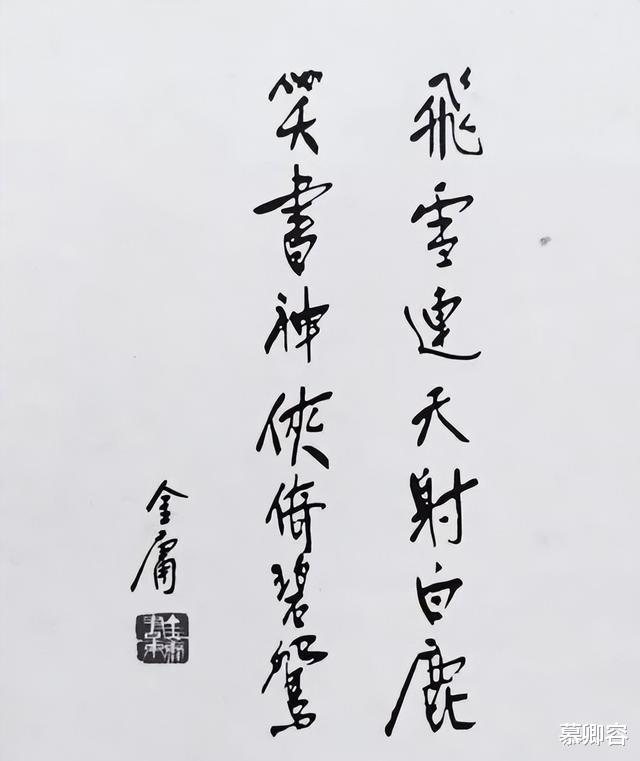 飛雪連天射白鹿
笑書神俠倚碧鴛
金庸
慕卿容